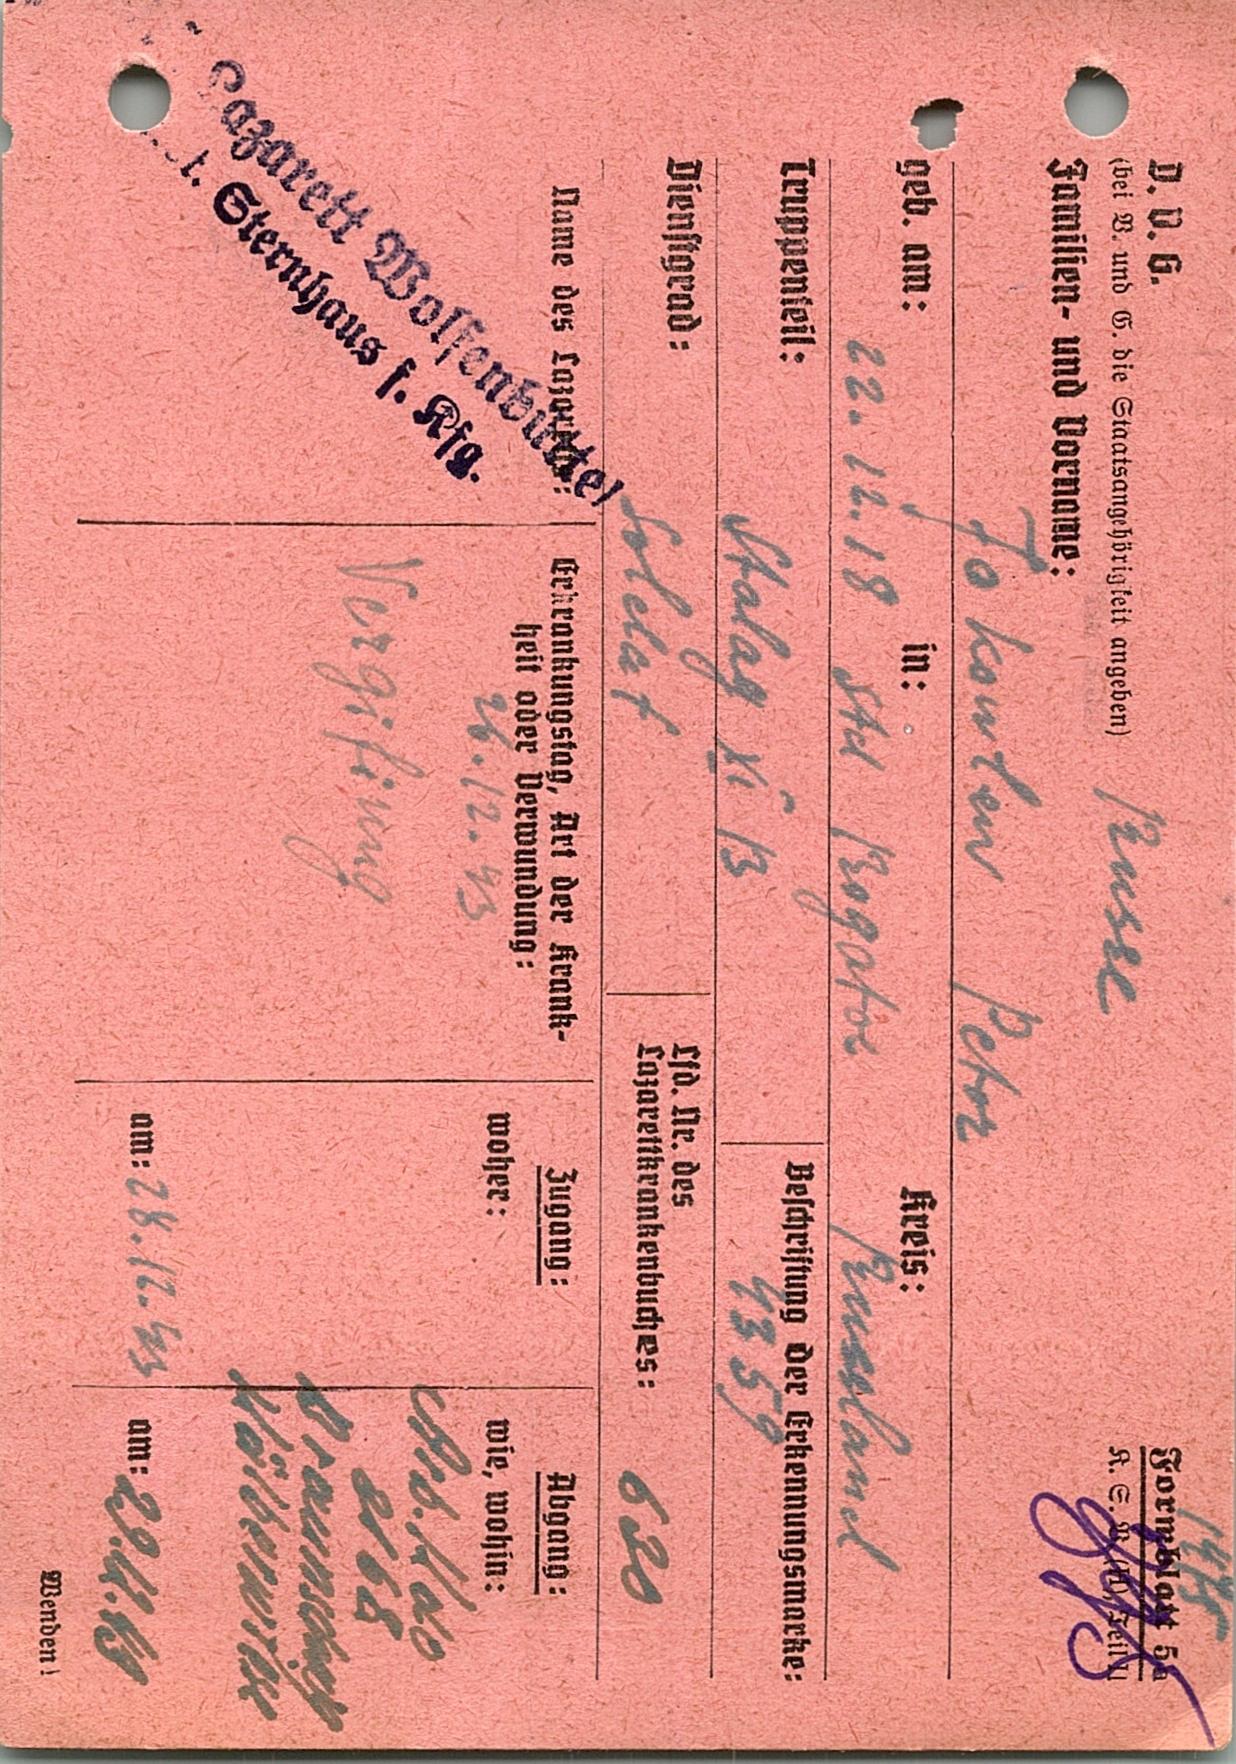 D. V. G.
Formblatt 5a
(bei V. und G. die Staatsangehörigkeit angeben) Russe
Familien- und Vorname:
Tokowlew Petor
geb. am: 22.12.18 in: Kreis: Russland
Truppenteil: Stalag XI B
Beschriftung der Erkennungsmarke: 4359
Dienstgrad: Soldat
Lfd. Nr. des
Lazarettkrankenbuches: 620
Name des Lazaretts:
Lazarett Wolfenbüttel
Sternhaus f. Kfg.
Erkrankungstag, Art der Krank-
heit oder Verwundung:
26.12.43
Vergiftung
Zugang:
woher:
am: 28.12.43
Abgang:
wie, wohin:
Arb. Kdo
Braunschweig
am: 29.12.43
Wenden!